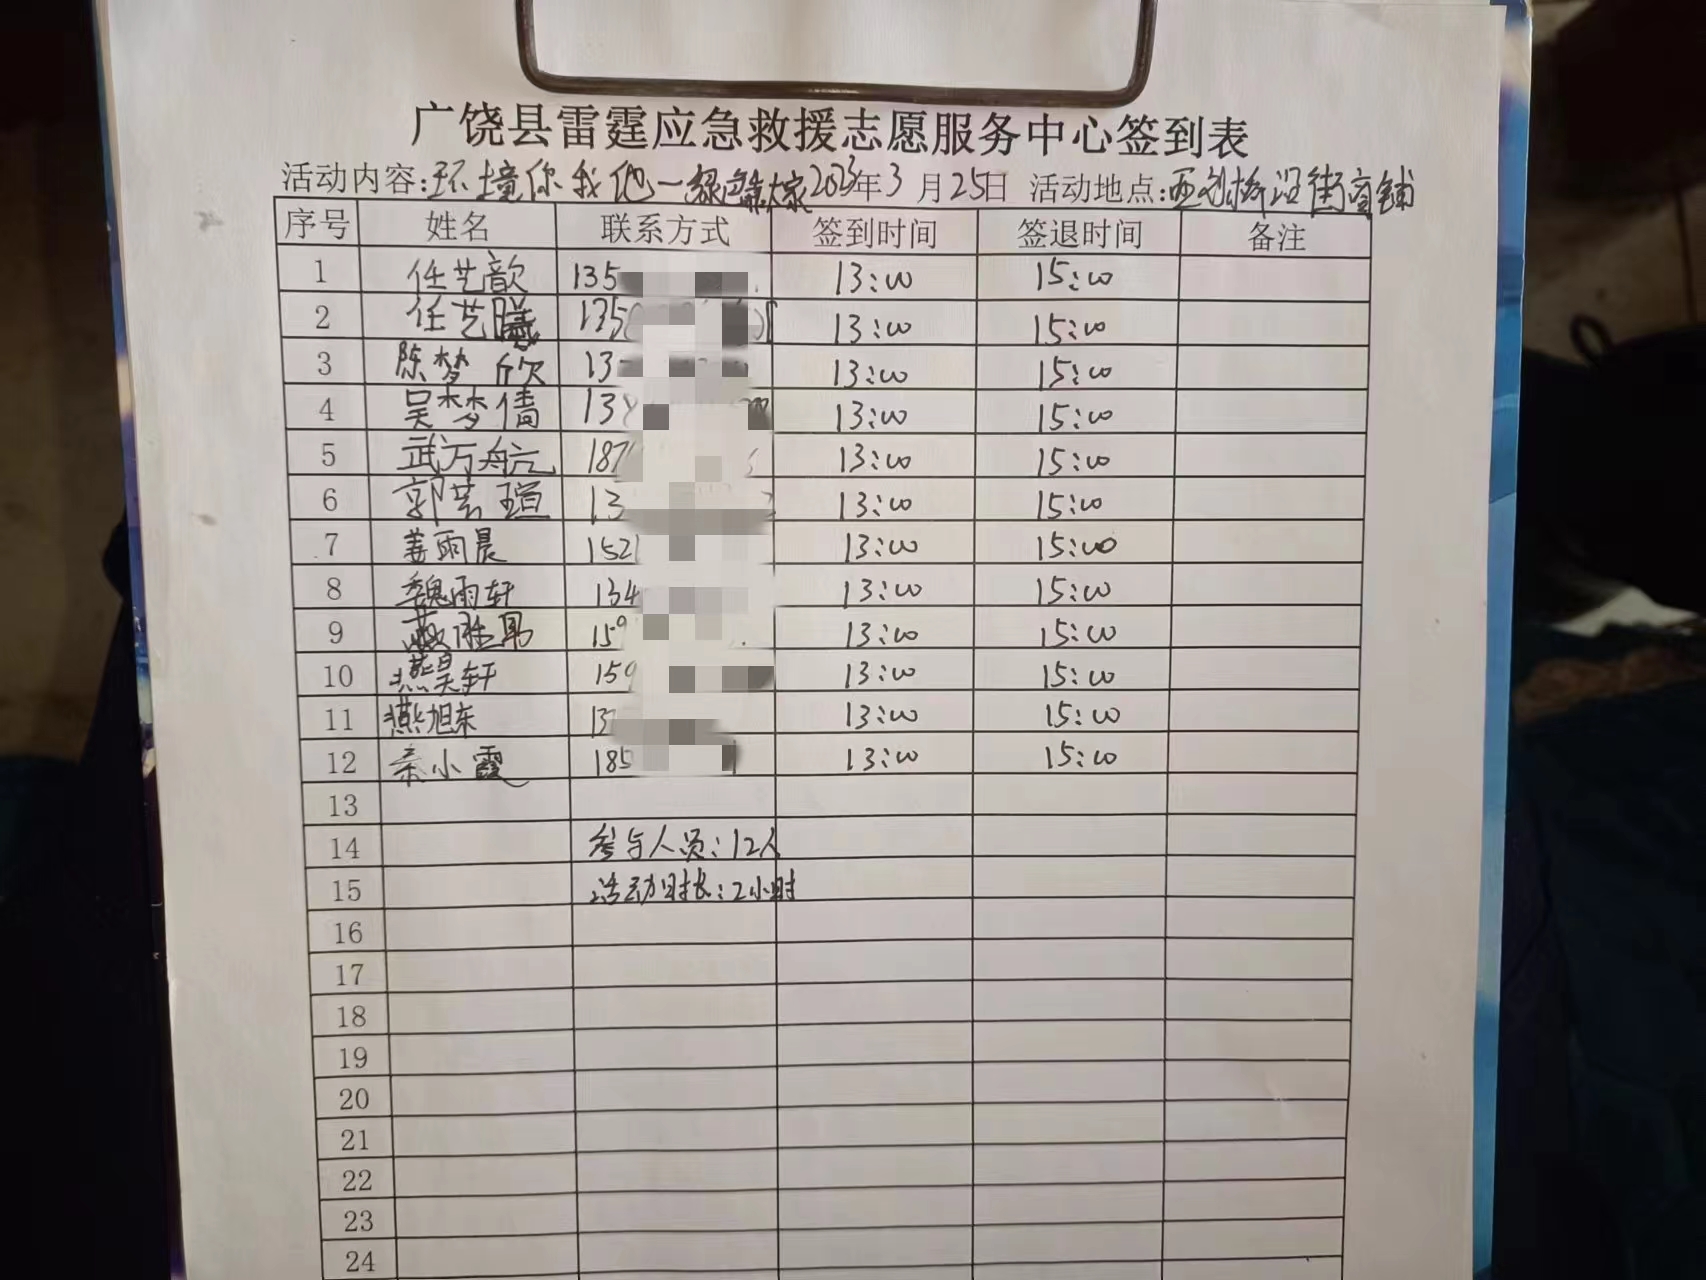 广饶县雷霆应急救援志愿服务中心签到表
活动内容:环境你我他一绿色靠大家2023年3月25日 活动地点:西刘桥沿街商铺
序号 姓名 联系方式 签到时间 签退时间 备注
1 任艺歆 135 13:00 15:00
2 任艺曦 135 13:00 15:00
3 陈梦欣 13 13:00 15:00
4 吴梦倩 138 13:00 15:00
5 武万航 187 13:00 15:00
6 郭芸瑄 13 13:00 15:00
7 姜雨晨 152 13:00 15:00
8 魏雨轩 134 13:00 15:00
9 159 13:00 15:00
10 燕昊轩 159 13:00 15:00
11 燕旭东 13 13:00 15:00
12 小霞 185 13:00 15:00
13
14 参与人员:12人
15 活动时长:2小时
16
17
18
19
20
21
22
23
24